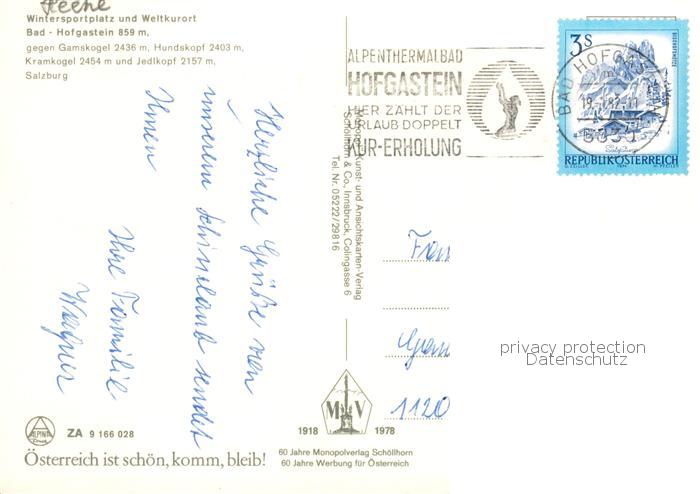 Wintersportplatz und Weltkurort
Bad - Hofgastein 859 m,
gegen Gamskogel 2436 m, Hundskopf 2403 m,
Kramkogel 2454 m und Jedlkopf 2157 m,
Salzburg
ALPENTHERMALBAD
HOFGASTEIN
HIER ZÄHLT DER
URLAUB DOPPELT
KUR-ERHOLUNG
3S
BAD HOFGA
REPUBLIK ÖSTERREICH
Herzliche Grüße von
unserem Schiurlaub sendet
Ihnen
Ihre Familie
Wagner
Monopol Kunst- und Ansichtskarten-Verlag
Schöllhorn & Co., Innsbruck, Colingasse 6
Tel. Nr. 05222/29816
1120
privacy protection
Datenschutz
M V
1918 1978
60 Jahre Monopolverlag Schöllhorn
60 Jahre Werbung für Österreich
ALPINA
ZA 9 166 028
Österreich ist schön, komm, bleib!